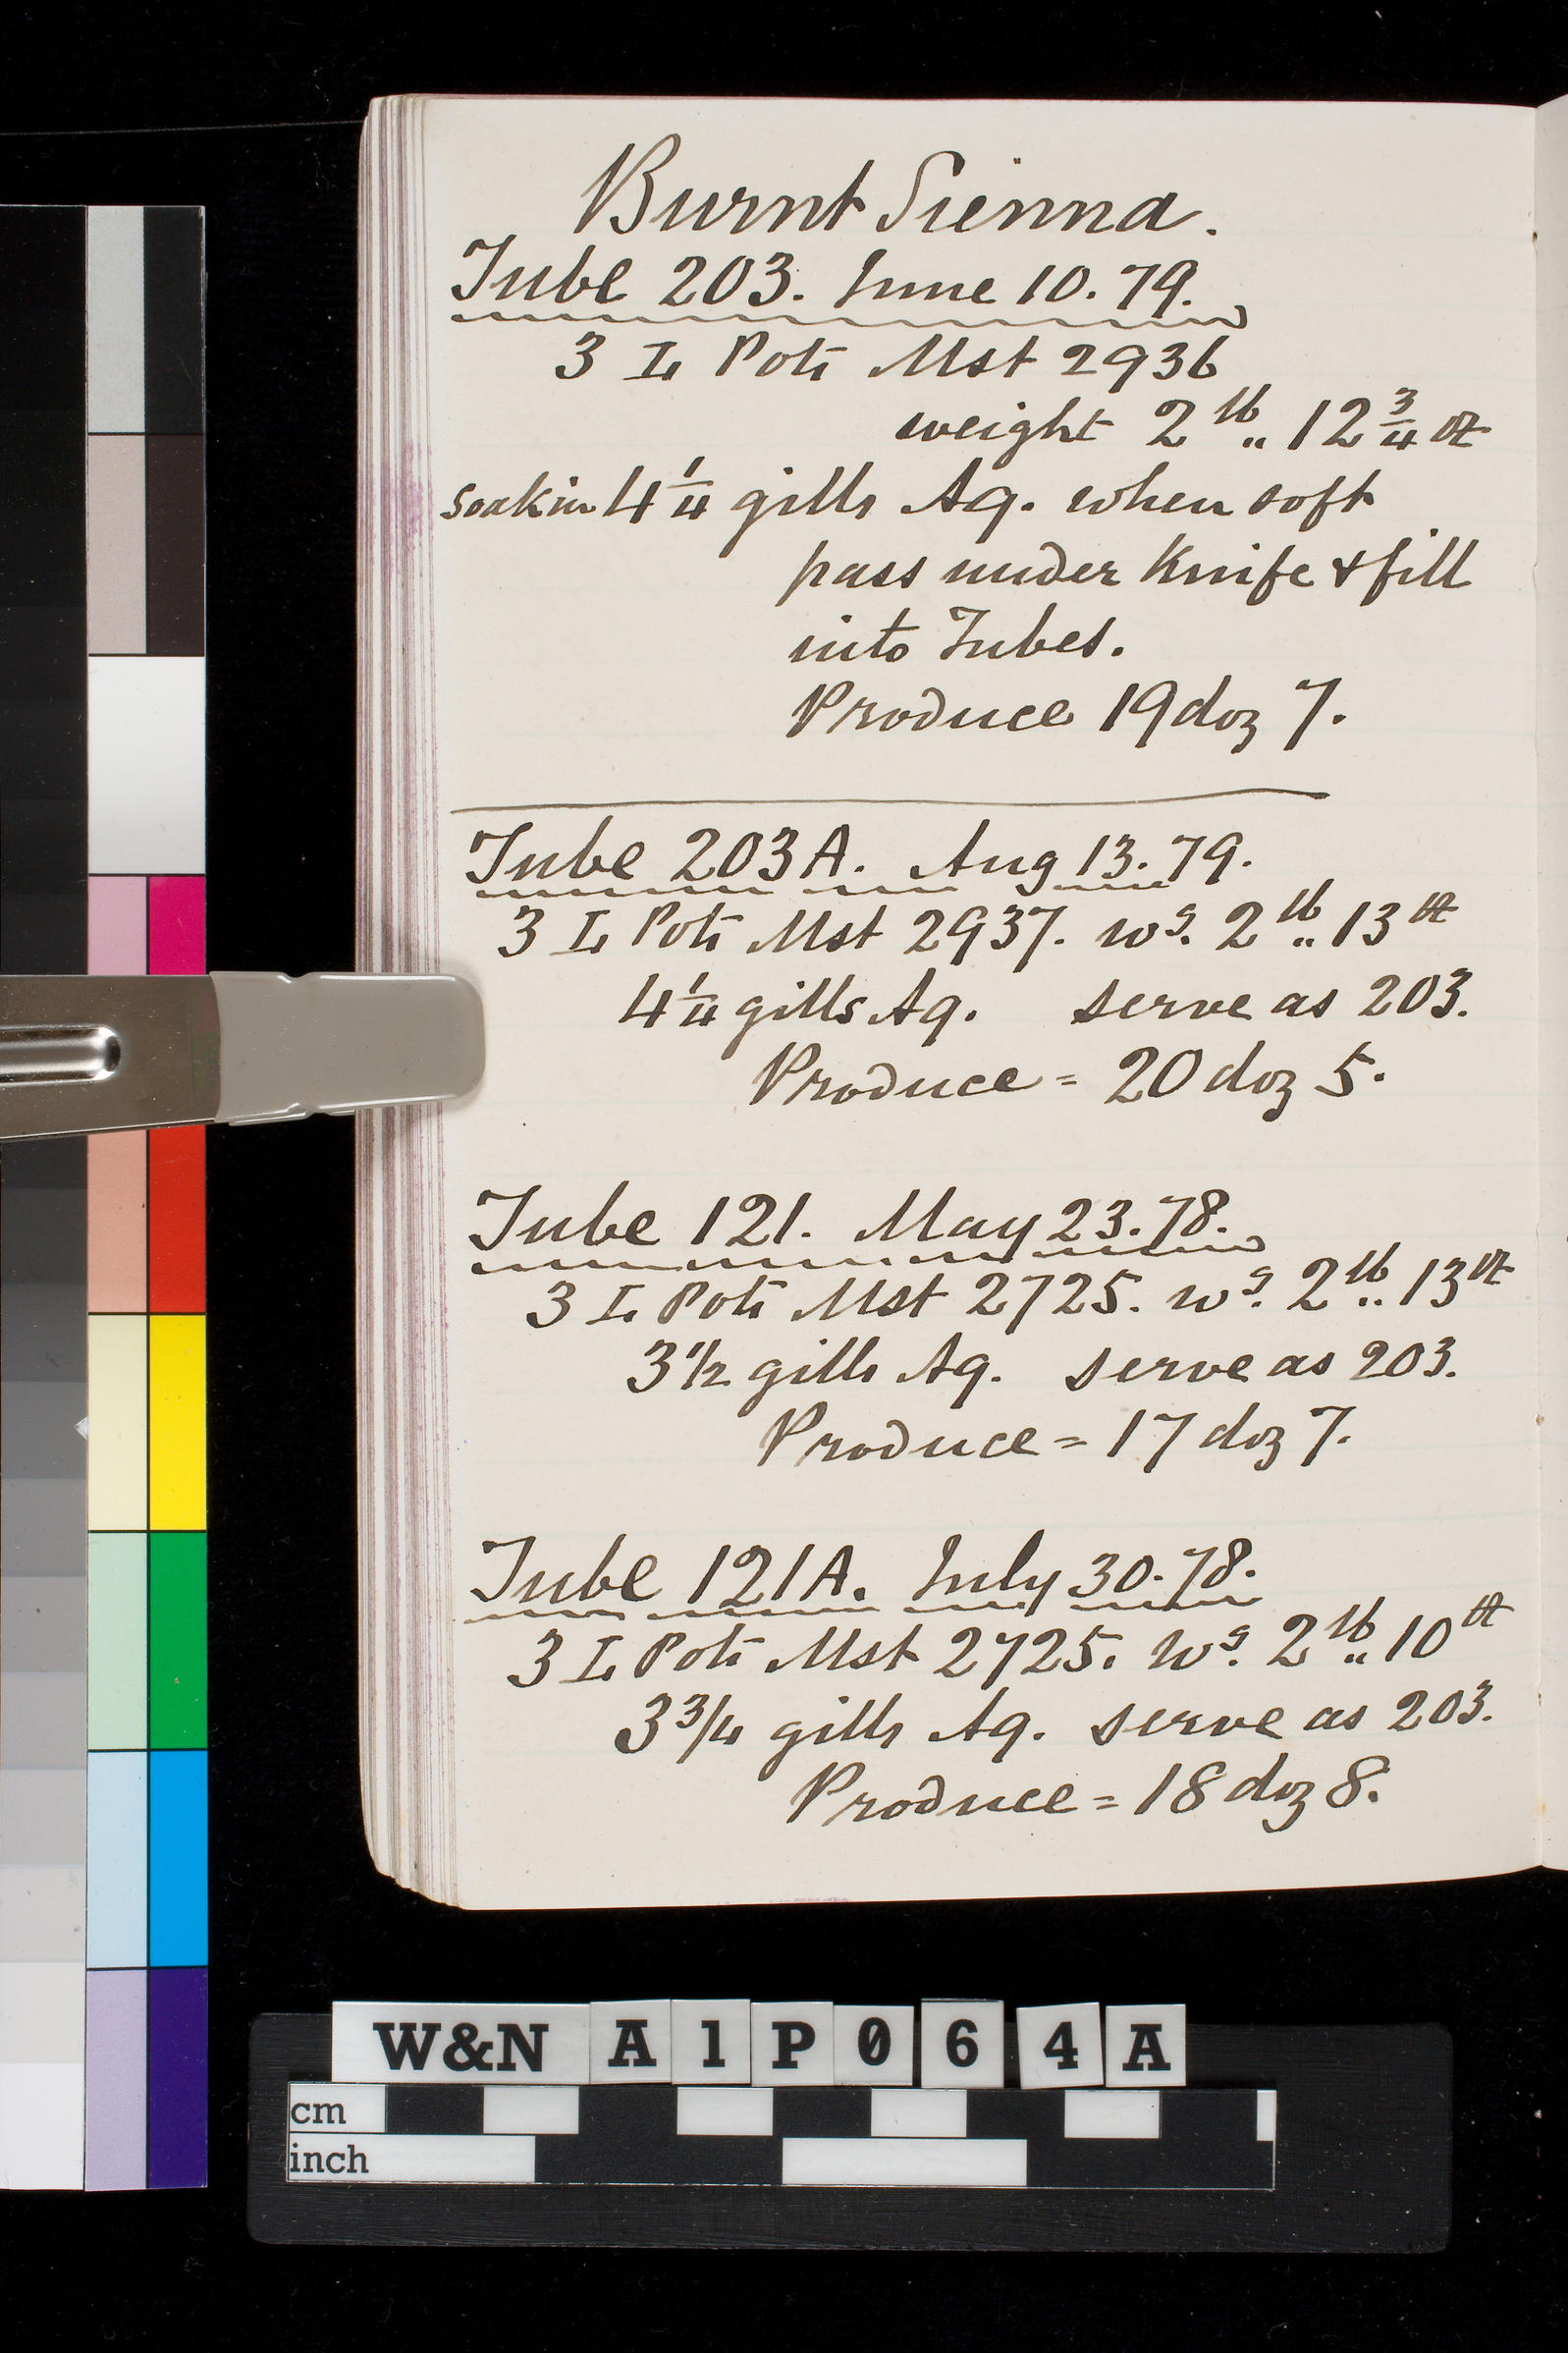 Burnt Sienna.
Tube 203. June 10. 79.
3 L Pots Mst 2936
weight 2 lb .. 12 3/4 oz
soak in 4 1/4 gills Aq. when soft
pass under Knife & fill
into Tubes.
Produce 19 doz 7.
Tube 203A. Aug 13. 79.
3 L Pots Mst 2937. wg. 2 lb .. 13 oz
4 1/4 gills Aq. serve as 203.
Produce = 20 doz 5.
Tube 121. May 23. 78.
3 L Pots Mst 2725. wg. 2 lb .. 13 oz
3 1/2 gills Aq. serve as 203.
Produce = 17 doz 7.
Tube 121A. July 30. 78.
3 L Pots Mst 2725. wg. 2 lb .. 10 oz
3 3/4 gills Aq. serve as 203.
Produce = 18 doz 8.
W&N A1P064A
cm
inch